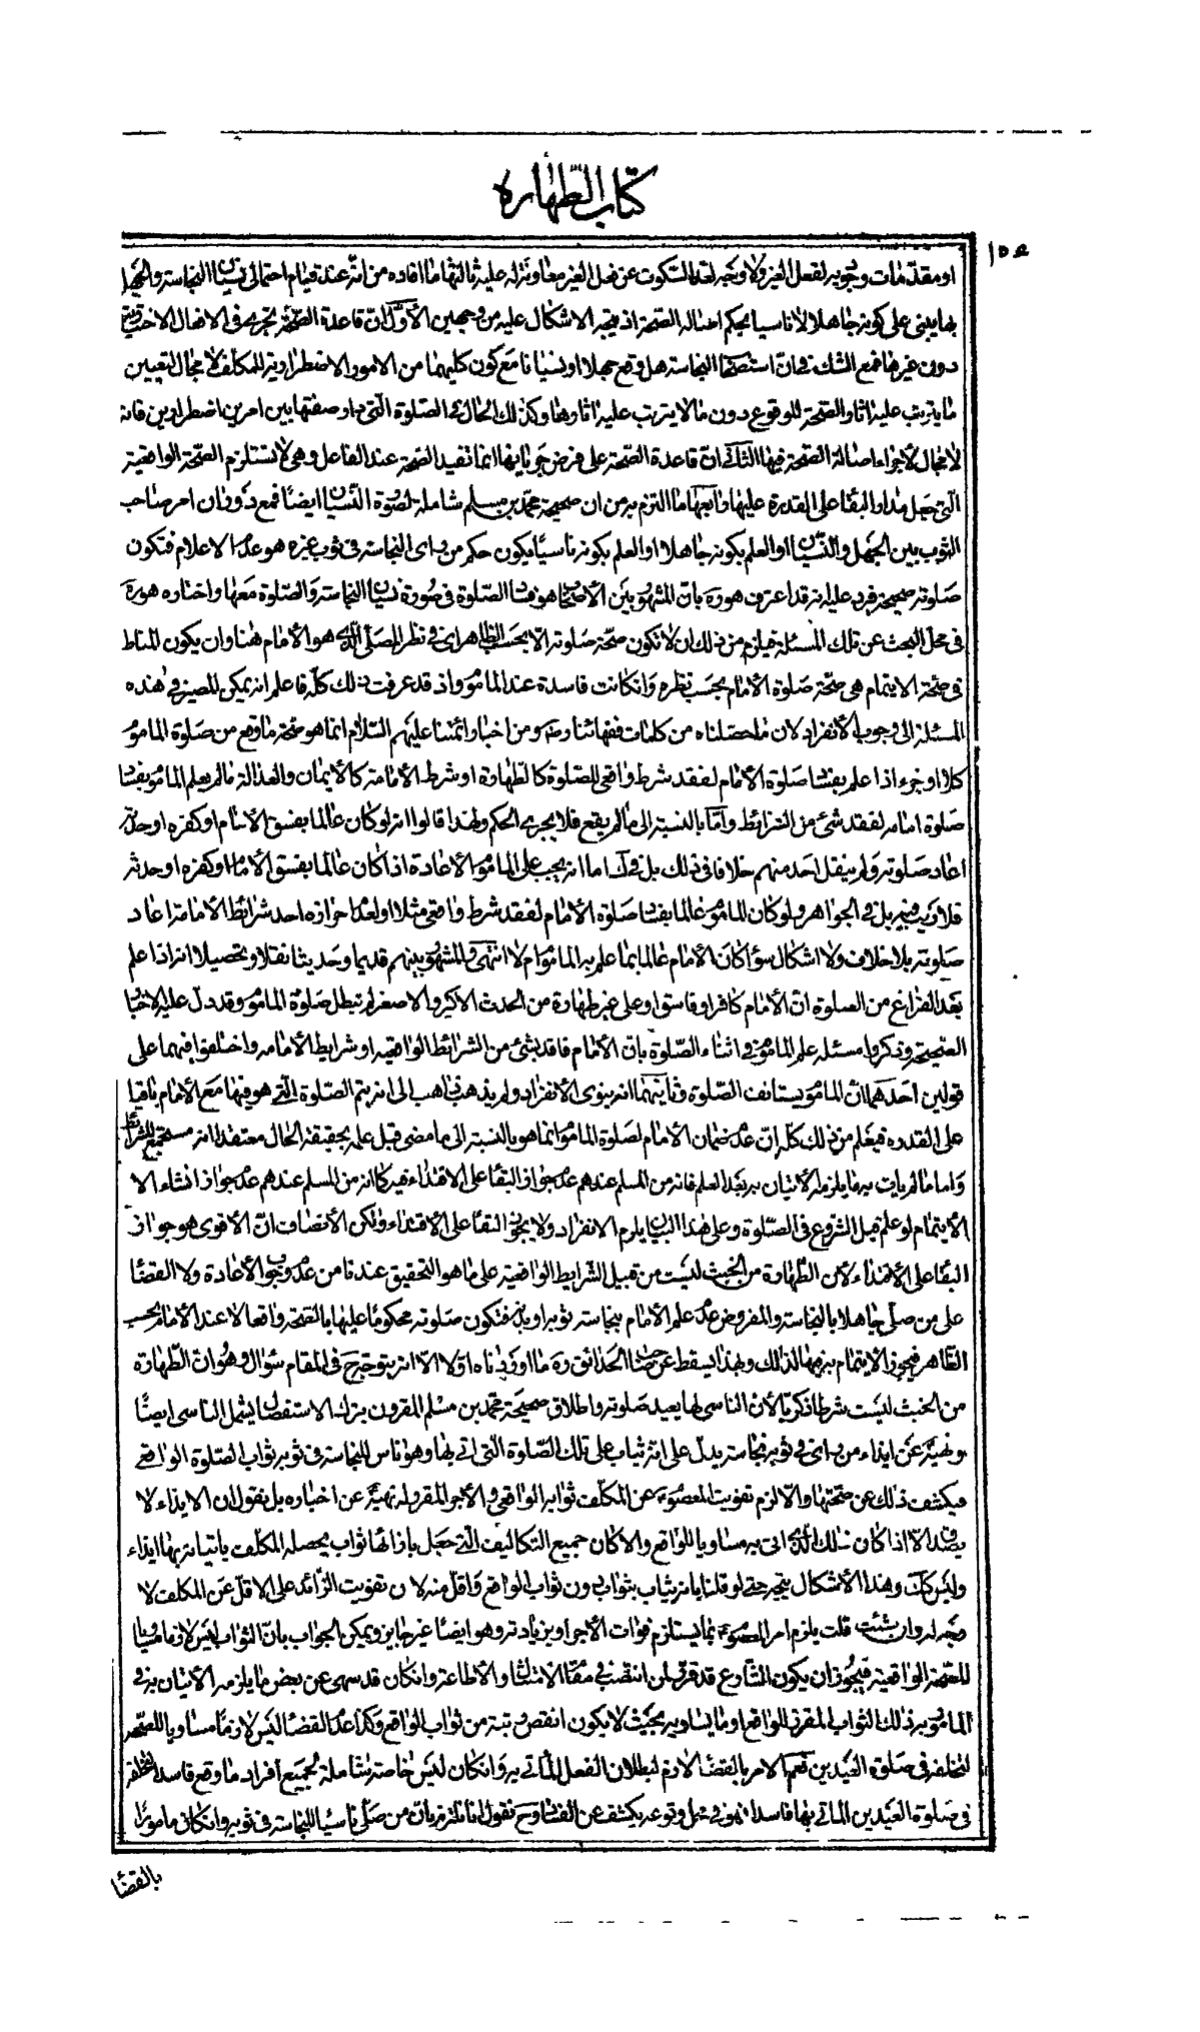 كتاب الطهارة
١٥٥
او مقدمات وجوبه لفعل الغير ولا وجه لعد السكوت عن فعل الغير معاونة له عليه ثالثها ما افاده من انه عند قيام احتمالي نسيان النجاسة والجهل
بها يبنى على كونه جاهلا لا ناسيا بحكم اصالة الصحة اذ يتجه الاشكال عليه من وجهين الأول ان قاعدة الصحة تجرى في الافعال الاختيارية
دون غيرها فمع الشك في ان استصحاب النجاسة هل وقع جهلا او نسيانا مع كون كليهما من الامور الاضطرارية للمكلف لا مجال لتعيين
ما يترتب عليه اثار الصحة للوقوع دون ما لا يترتب عليه اثارها وكذلك الحال في الصلوة التي دار صفتها بين امرين اضطراريين فانه
لا مجال لأجراء اصالة الصحة فيها الثاني ان قاعدة الصحة على فرض جريانها انما تفيد الصحة عند الفاعل وهي لا تستلزم الصحة الواقعية
التي جعل مدار البقاء على القدوة عليها رابعها ما التزم به من ان صحيحة محمد بن مسلم شاملة لصورة النسيان ايضا فمع دوران امر صاحب
الثوب بين الجهل والنسيان او العلم بكونه جاهلا او العلم بكونه ناسيا يكون حكم من راى النجاسة في ثوب غيره هو عدم الاعلام فتكون
صلوته صحيحة فيرد عليه انه قد اعترف هو ره بان المشهور بين الأصحاب هو فساد الصلوة في صورة نسيان النجاسة والصلوة معها واختاره هو ره
في محل البحث عن تلك المسئلة فيلزم من ذلك ان لا تكون صحة صلوته الا بحسب الظاهر اى في نظر المصلى الذى هو الأمام هنا وان يكون المناط
في صحة الايتمام هى صحة صلوة الأمام بحسب نظره وان كانت فاسدة عند الماموم واذ قد عرفت ذلك كله فاعلم انه يمكن المصير في هذه
المسئلة الى وجوب الأنفراد لان ما حصلناه من كلمات فقهائنا رض و من اخبار ائمتنا عليهم السلام انما هو صحة ما وقع من صلوة الماموم
كلا او جزء اذا علم بفساد صلوة الأمام لفقد شرط واقعي للصلوة كالطهارة او شرط الأمامة كالأيمان والعدالة ما لم يعلم الماموم بفساد
صلوة امامه لفقد شئ من الشرائط واما بالنسبة الى ما لم يقع فلا يجرى الحكم ولهذا قالوا انه لو كان عالما بفسق الأمام او كفره او حدثه
اعاد صلوته ولم ينقل احد منهم خلافا في ذلك بل في ك اما انه يجب على الماموم الأعادة اذا كان عالما بفسق الأمام او كفره او حدثه
فلا ريب فيه بل في الجواهر ولو كان الماموم عالما بفساد صلوة الأمام لفقد شرط واقعي مثلا او لعدم احرازه احد شرائط الامامة اعاد
صلوته بلا خلاف ولا اشكال سواء كان الأمام عالما بما علم به الماموم ام لا انتهى والمشهور بينهم قديما وحديثا نقلا وتحصيلا انه اذا علم
بعد الفراغ من الصلوة ان الأمام كافر او فاسق او على غير طهارة من الحدث الاكبر والاصغر لم تبطل صلوة الماموم وقد دل عليه الاخبار
الصحيحة وذكروا مسئلة علم الماموم في اثناء الصلوة بان الأمام فاقد بشئ من الشرائط الواقعية او شرايط الأمامة واختلفوا فيهما على
قولين احدهما ان الماموم يستانف الصلوة وثانيهما انه ينوى الأنفراد ولم يذهب ذاهب الى انه يتم الصلوة التي هو فيها مع الأمام باقيا
على القدوة فيعلم من ذلك كله ان عدم ضمان الامام لصلوة الماموم انما هو بالنسبة الى ما مضى قبل علمه بحقيقة الحال معتقدا انه مستجمع للشرائط
واما ما لم يات به مما يلزمه الأتيان به بعد العلم فانه من المسلم عندهم عدم جواز البقاء على الاقتداء فيه كما انه من المسلم عندهم عدم جواز انشاء الا
الأيتمام لو علم قبل الشروع في الصلوة وعلى هذا البيان يلزم الانفراد ولا يجوز البقاء على الاقتداء ولكن الأنصاف ان الأقوى هو جواز
البقاء على الأقتداء لأن الطهارة من الخبث ليست من قبيل الشرايط الواقعية على ما هو التحقيق عندنا من عدم وجوب الأعادة ولا القضاء
على من صلى جاهلا بالنجاسة والمفروض عدم علم الامام بنجاسة ثوبه او بدنه فتكون صلوته محكوما عليها بالصحة واقعا لا عند الأمام بحسب
الظاهر فيجوز الايتمام به فيها لذلك وبهذا يسقط عن صاحب الحدائق ره ما اوردناه اولا الا انه يتوجه في المقام سؤال وهو ان الطهارة
من الخبث ليست شرطا ذكريا لأن الناسي لها يعيد صلوته واطلاق صحيحة محمد بن مسلم المقرون بترك الاستفصال يشمل الناسى ايضا
ونهيه عن ايذاء من راى في ثوبه نجاسة يدل على انه يثاب على تلك الصلوة التي اتى بها وهو ناس للنجاسة في ثوبه ثواب الصلوة الواقعية
فيكشف ذلك عن صحتها والا لزم تفويت المعصوم ع عن المكلف ثوابه الواقعي والأجر المقرر له بنهيه عن اخباره بل نقول ان الايذاء لا
يصدق الا اذا كان ذلك الذى اتى به مساويا للواقع والا كان جميع التكاليف التي جعل بازائها ثواب يحصله المكلف باتيانه بها ايذاء
وليس كك وهذا الأشكال يتجه حتى لو قلنا بانه يثاب بثواب دون ثواب الواقع واقل منه لان تفويت الزائد على الاقل عن المكلف لا
وجه له وان شئت قلت يلزم امر المعصوم ع بما يستلزم فوات الأجر او زيادته وهو ايضا غير جايز ويمكن الجواب بان الثواب ليس لازما مساويا
للصحة الواقعية فيجوز ان يكون الشارع قد قرر لمن انتصب في مقام الامتثال والأطاعة وان كان قد سهى عن بعض ما يلزمه الأتيان به في
المامور به ذلك الثواب المقرر في الواقع او ما يساويه بحيث لا يكون انقص رتبة من ثواب الواقع وكذا عدم القضاء ليس لازما مساويا للصحة
لتخلفه في صلوة العيدين نعم الامر بالقضاء لازم لبطلان الفعل المأتي به وان كان ليس خاصة شاملة لجميع افراد ما وقع فاسدا لتخلفه
في صلوة العيدين المأتي بها فاسدا فهو في محل وقوعه يكشف عن الفساد وح نقول انا نلتزم بان من صلى ناسيا للنجاسة في ثوبه وان كان مامورا
بالقضاء